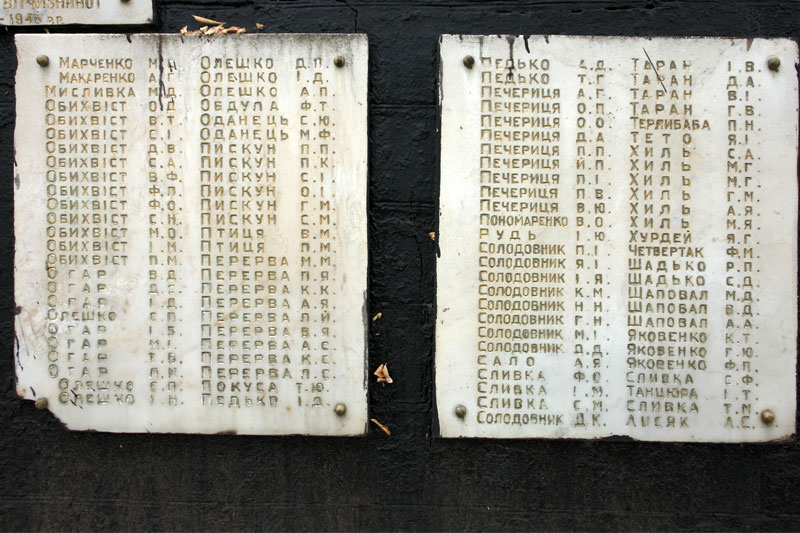 ВІТЧИЗНЯНОЇ
-1945 р.р.
МАРЧЕНКО М.
МАКАРЕНКО А.Г.
МИСЛИВКА М.Д.
ОБИХВІСТ О.Д.
ОБИХВІСТ В.Т.
ОБИХВІСТ С.І.
ОБИХВІСТ Д.В.
ОБИХВІСТ С.А.
ОБИХВІСТ В.Ф.
ОБИХВІСТ Ф.П.
ОБИХВІСТ Ф.О.
ОБИХВІСТ С.Н.
ОБИХВІСТ М.О.
ОБИХВІСТ І.М.
ОБИХВІСТ П.М.
ОГАР В.Д.
ОГАР С.Д.
ОГАР І.Д.
ОЛЕШКО І.П.
ОГАР І.В.
ОГАР М.М.
ОГАР Т.
ОГАР
ОЛЕШКО Є.П.
ОЛЕШКО
ОЛЕШКО Д.П.
ОЛЕШКО І.Д.
ОЛЕШКО А.П.
ОБДУЛА Ф.Т.
ОДАНЕЦЬ С.Ю.
ОДАНЕЦЬ М.Ф.
ПИСКУН П.П.
ПИСКУН П.К.
ПИСКУН С.І.
ПИСКУН О.І.
ПИСКУН Г.М.
ПИСКУН С.М.
ПТИЦЯ В.М.
ПТИЦЯ П.М.
ПЕРЕРВА М.М.
ПЕРЕРВА П.Я.
ПЕРЕРВА К.К.
ПЕРЕРВА А.К.
ПЕРЕРВА П.Й.
ПЕРЕРВА В.Я.
ПЕРЕРВА А.С.
ПЕРЕРВА К.С.
ПЕРЕРВА П.С.
ПОКУСА Т.Ю.
ПЕДЬКО І.Д.
ПЕДЬКО Д.
ПЕДЬКО Т.Г.
ПЕЧЕРИЦЯ А.Г.
ПЕЧЕРИЦЯ О.П.
ПЕЧЕРИЦЯ О.О.
ПЕЧЕРИЦЯ Д.А.
ПЕЧЕРИЦЯ П.П.
ПЕЧЕРИЦЯ Й.П.
ПЕЧЕРИЦЯ І.П.
ПЕЧЕРИЦЯ П.В.
ПЕЧЕРИЦЯ В.Ю.
ПОНОМАРЕНКО В.О.
РУДЬ І.Ю.
СОЛОДОВНИК П.І.
СОЛОДОВНИК Я.І.
СОЛОДОВНИК І.Я.
СОЛОДОВНИК К.М.
СОЛОДОВНИК Н.Н.
СОЛОДОВНИК Г.Н.
СОЛОДОВНИК М.І.
СОЛОДОВНИК Д.Д.
САЛО А.Я.
СЛИВКА Ф.О.
СЛИВКА І.М.
СЛИВКА Є.М.
СОЛОДОВНИК Д.К.
ТАРАН І.В.
ТАРАН Д.А.
ТАРАН В.І.
ТАРАН Г.В.
ТЕРЛИБАБА П.Н.
ТЕТО Я.І.
ХИЛЬ С.А.
ХИЛЬ М.Г.
ХИЛЬ М.Г.
ХИЛЬ І.М.
ХИЛЬ А.Я.
ХИЛЬ М.Я.
ХУРДЕЙ Я.Г.
ЧЕТВЕРТАК Ф.М.
ШАДЬКО Р.П.
ШАДЬКО С.Д.
ШАПОВАЛ М.Д.
ШАПОВАЛ В.Д.
ШАПОВАЛ А.А.
ЯКОВЕНКО К.Т.
ЯКОВЕНКО Г.Ю.
ЯКОВЕНКО Ф.П.
СЛИВКА С.Ф.
ТАНЦЮРА І.Т.
СЛИВКА Т.М.
ЛИСЯК Л.С.